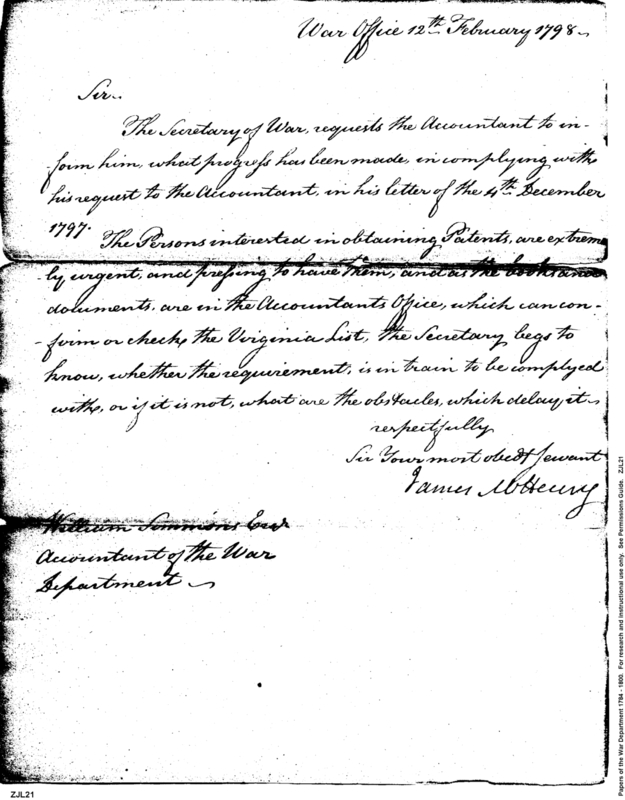 War Office 12th February 1798
Sir
The Secretary of War, requests the Accountant to in-
-form him, what progress has been made, in complying with
his request to the Accountant, in his letter of the 4th December
1797.
The Persons interested in obtaining Patents, are extreme
ly urgent, and pressing to have them, and as the books and
documents, are in the Accountants Office, which can con-
-firm or check the Virginia List, the Secretary begs to
know, whether the requirement, is in train to be complyed
with, or if it is not, what are the obstacles, which delay it
respectfully
Sir Your most obedt Servant
James McHenry
William Simmons Esqr
Accountant of the War
Department
ZJL21
Papers of the War Department 1784 - 1800. For research and instructional use only. See Permissions Guide. ZJL21